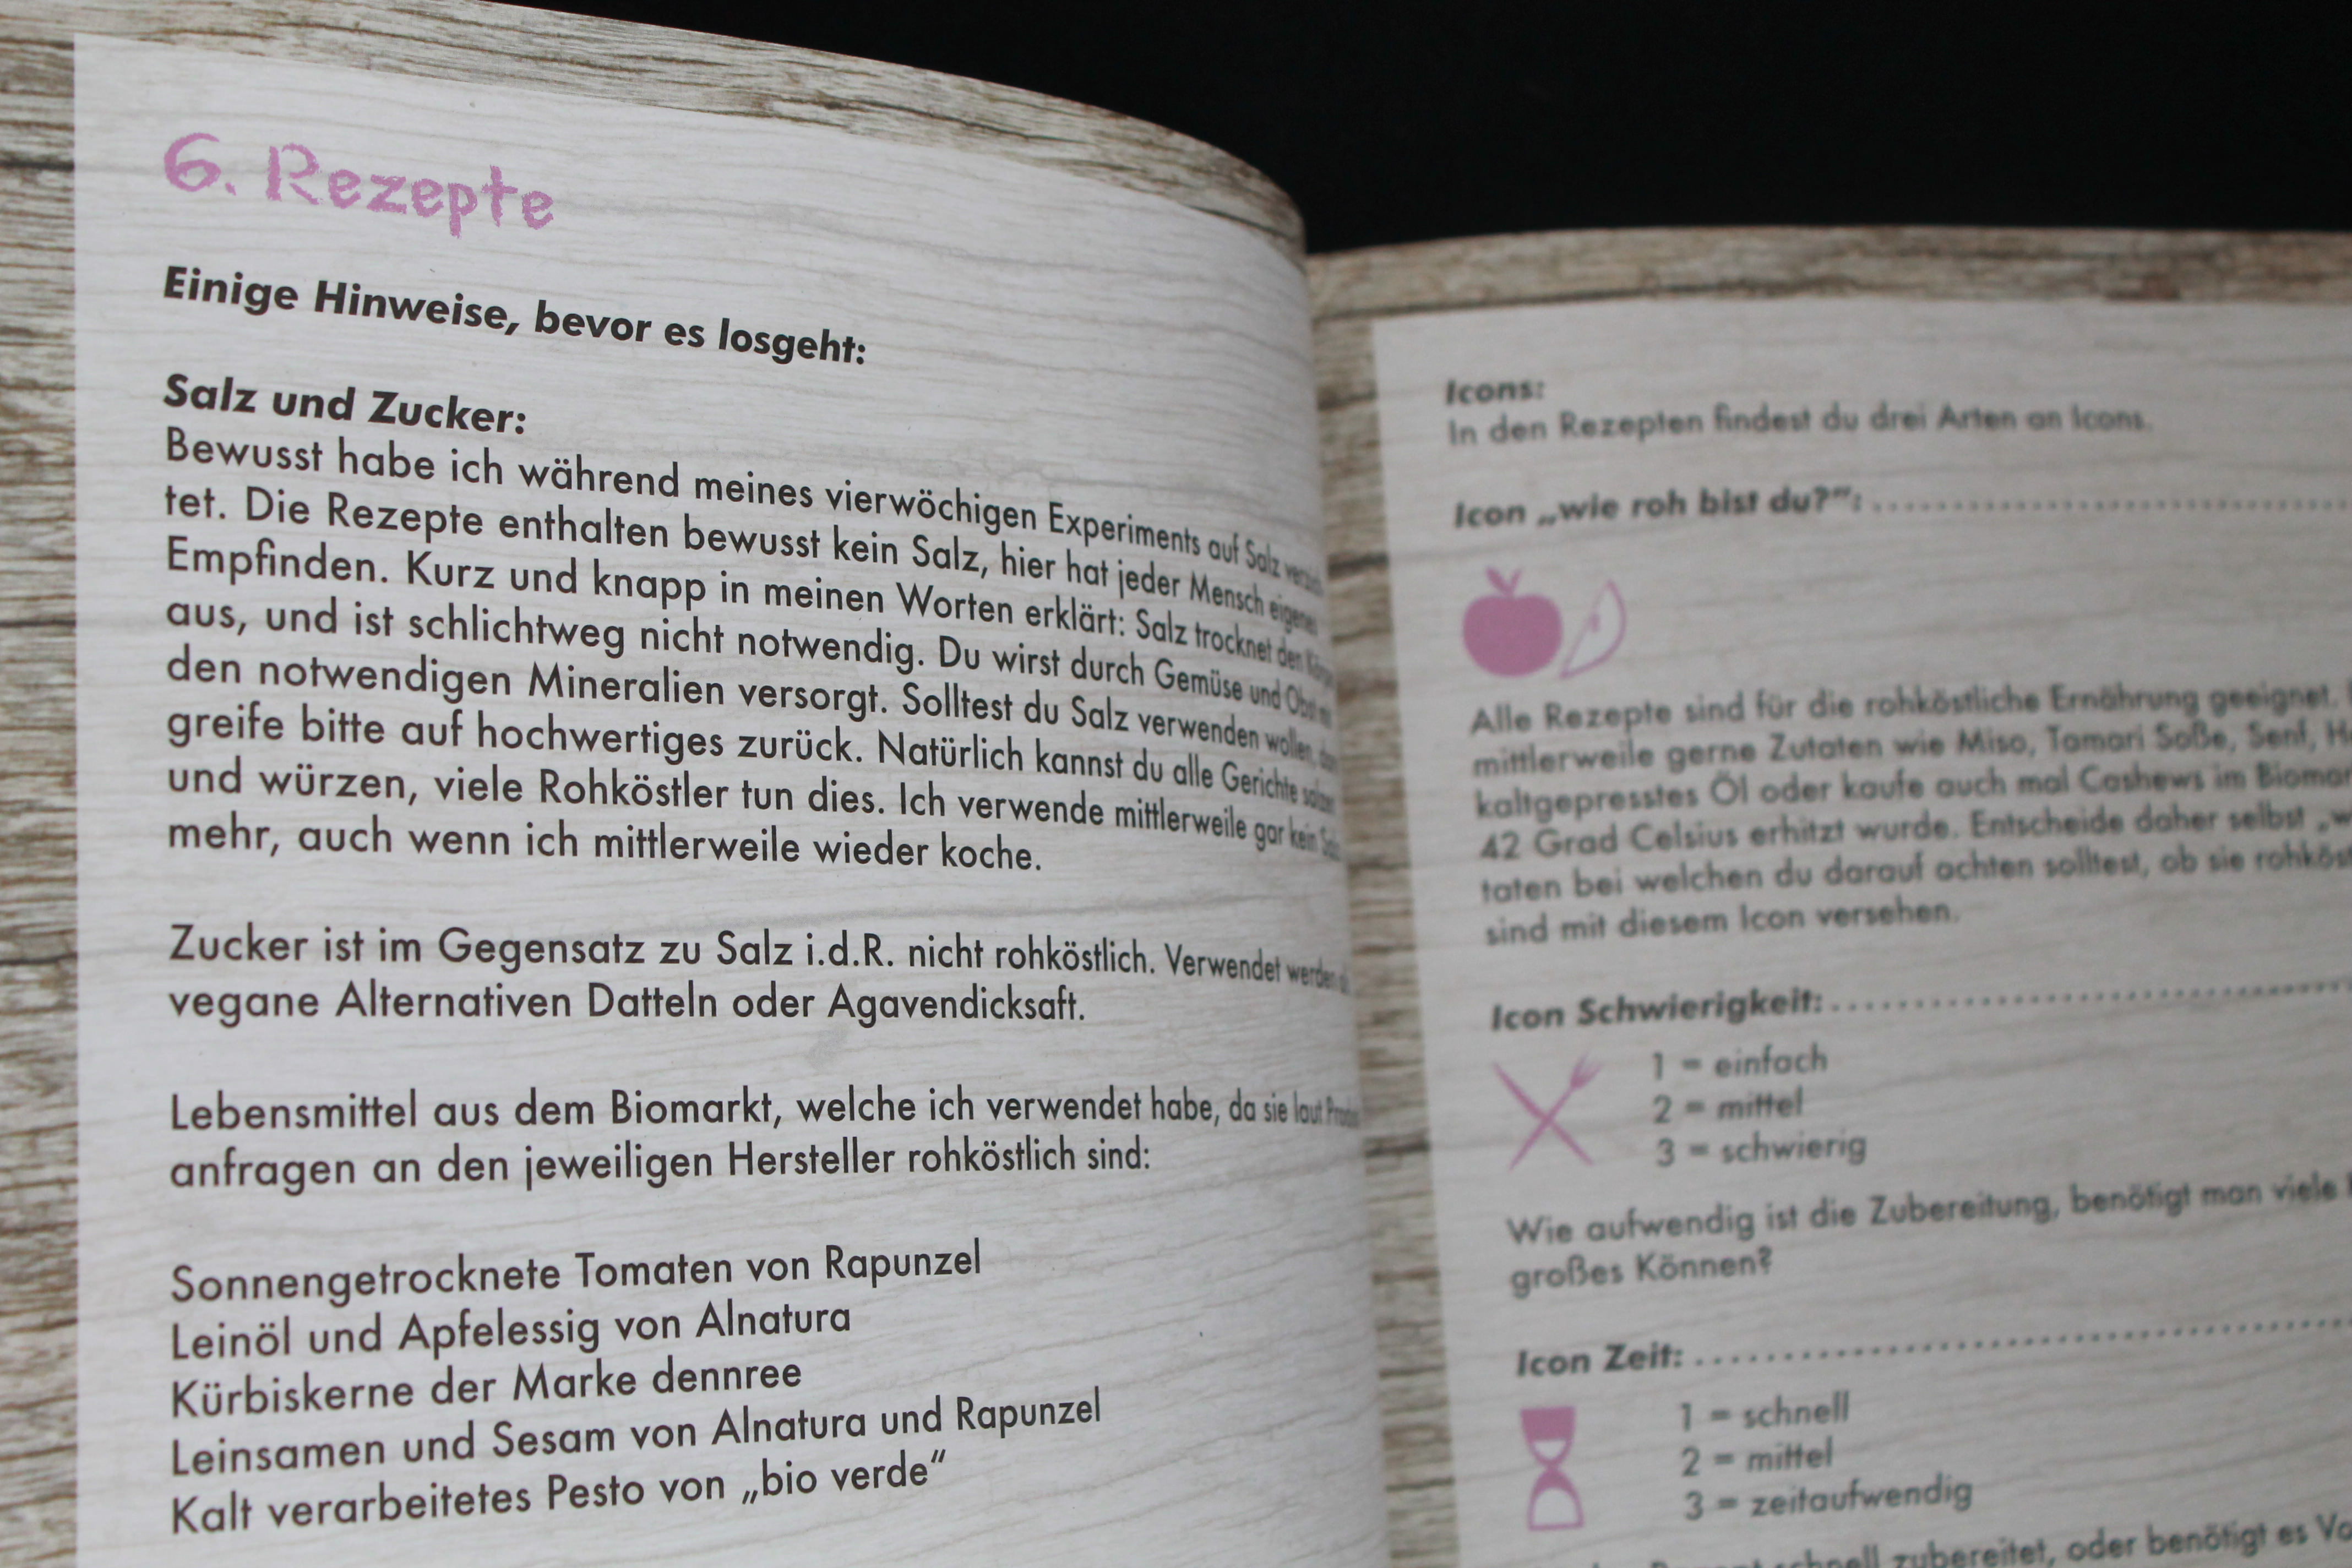 6. Rezepte
Einige Hinweise, bevor es losgeht:
Salz und Zucker:
Bewusst habe ich während meines vierwöchigen Experiments auf Salz verzich
tet. Die Rezepte enthalten bewusst kein Salz, hier hat jeder Mensch eigenes
Empfinden. Kurz und knapp in meinen Worten erklärt: Salz trocknet den Körper
aus, und ist schlichtweg nicht notwendig. Du wirst durch Gemüse und Obst mit
den notwendigen Mineralien versorgt. Solltest du Salz verwenden wollen, dann
greife bitte auf hochwertiges zurück. Natürlich kannst du alle Gerichte salzen
und würzen, viele Rohköstler tun dies. Ich verwende mittlerweile gar kein Salz
mehr, auch wenn ich mittlerweile wieder koche.
Zucker ist im Gegensatz zu Salz i.d.R. nicht rohköstlich. Verwendet werden als
vegane Alternativen Datteln oder Agavendicksaft.
Lebensmittel aus dem Biomarkt, welche ich verwendet habe, da sie laut
anfragen an den jeweiligen Hersteller rohköstlich sind:
Sonnengetrocknete Tomaten von Rapunzel
Leinöl und Apfelessig von Alnatura
Kürbiskerne der Marke dennree
Leinsamen und Sesam von Alnatura und Rapunzel
Kalt verarbeitetes Pesto von „bio verde“
Icons:
In den Rezepten findest du drei Arten an Icons.
Icon „wie roh bist du?“:
Alle Rezepte sind für die rohköstliche Ernährung geeignet.
mittlerweile gerne Zutaten wie Miso, Tamari Soße, Senf,
kaltgepresstes Öl oder kaufe auch mal Cashews im
42 Grad Celsius erhitzt wurde. Entscheide daher selbst
taten bei welchen du darauf achten solltest, ob sie
sind mit diesem Icon versehen.
Icon Schwierigkeit:
1 = einfach
2 = mittel
3 = schwierig
Wie aufwendig ist die Zubereitung, benötigt man viele
großes Können?
Icon Zeit:
1 = schnell
2 = mittel
3 = zeitaufwendig
schnell zubereitet, oder benötigt es